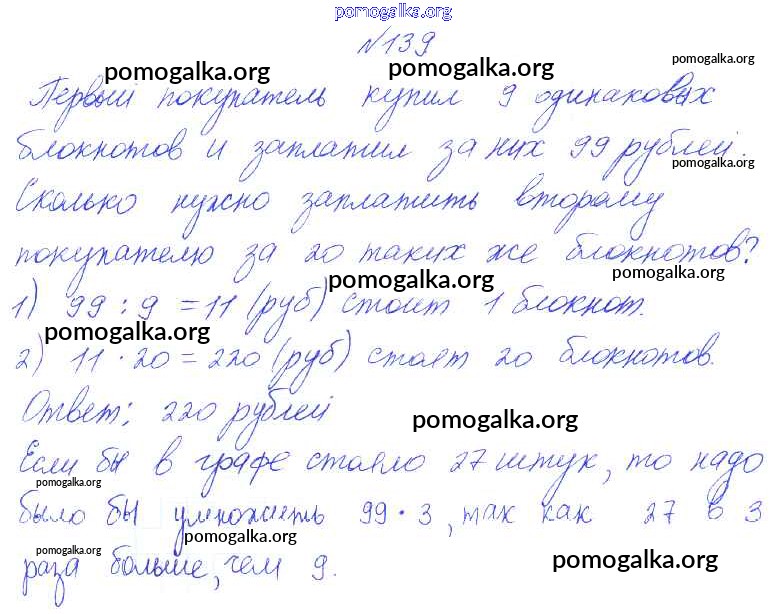 pomogalka.org
№139
pomogalka.org pomogalka.org pomogalka.org
Первый покупатель купил 9 одинаковых
блокнотов и заплатил за них 99 рублей.
pomogalka.org
Сколько нужно заплатить второму
покупателю за 20 таких же блокнотов?
pomogalka.org pomogalka.org
1) 99 : 9 = 11 (руб) стоит 1 блокнот.
pomogalka.org
2) 11 · 20 = 220 (руб) стоят 20 блокнотов.
Ответ: 220 рублей
pomogalka.org
Если бы в графе стояло 27 штук, то надо
pomogalka.org
было бы умножить 99 · 3, так как 27 в 3
pomogalka.org
pomogalka.org pomogalka.org
раза больше, чем 9.